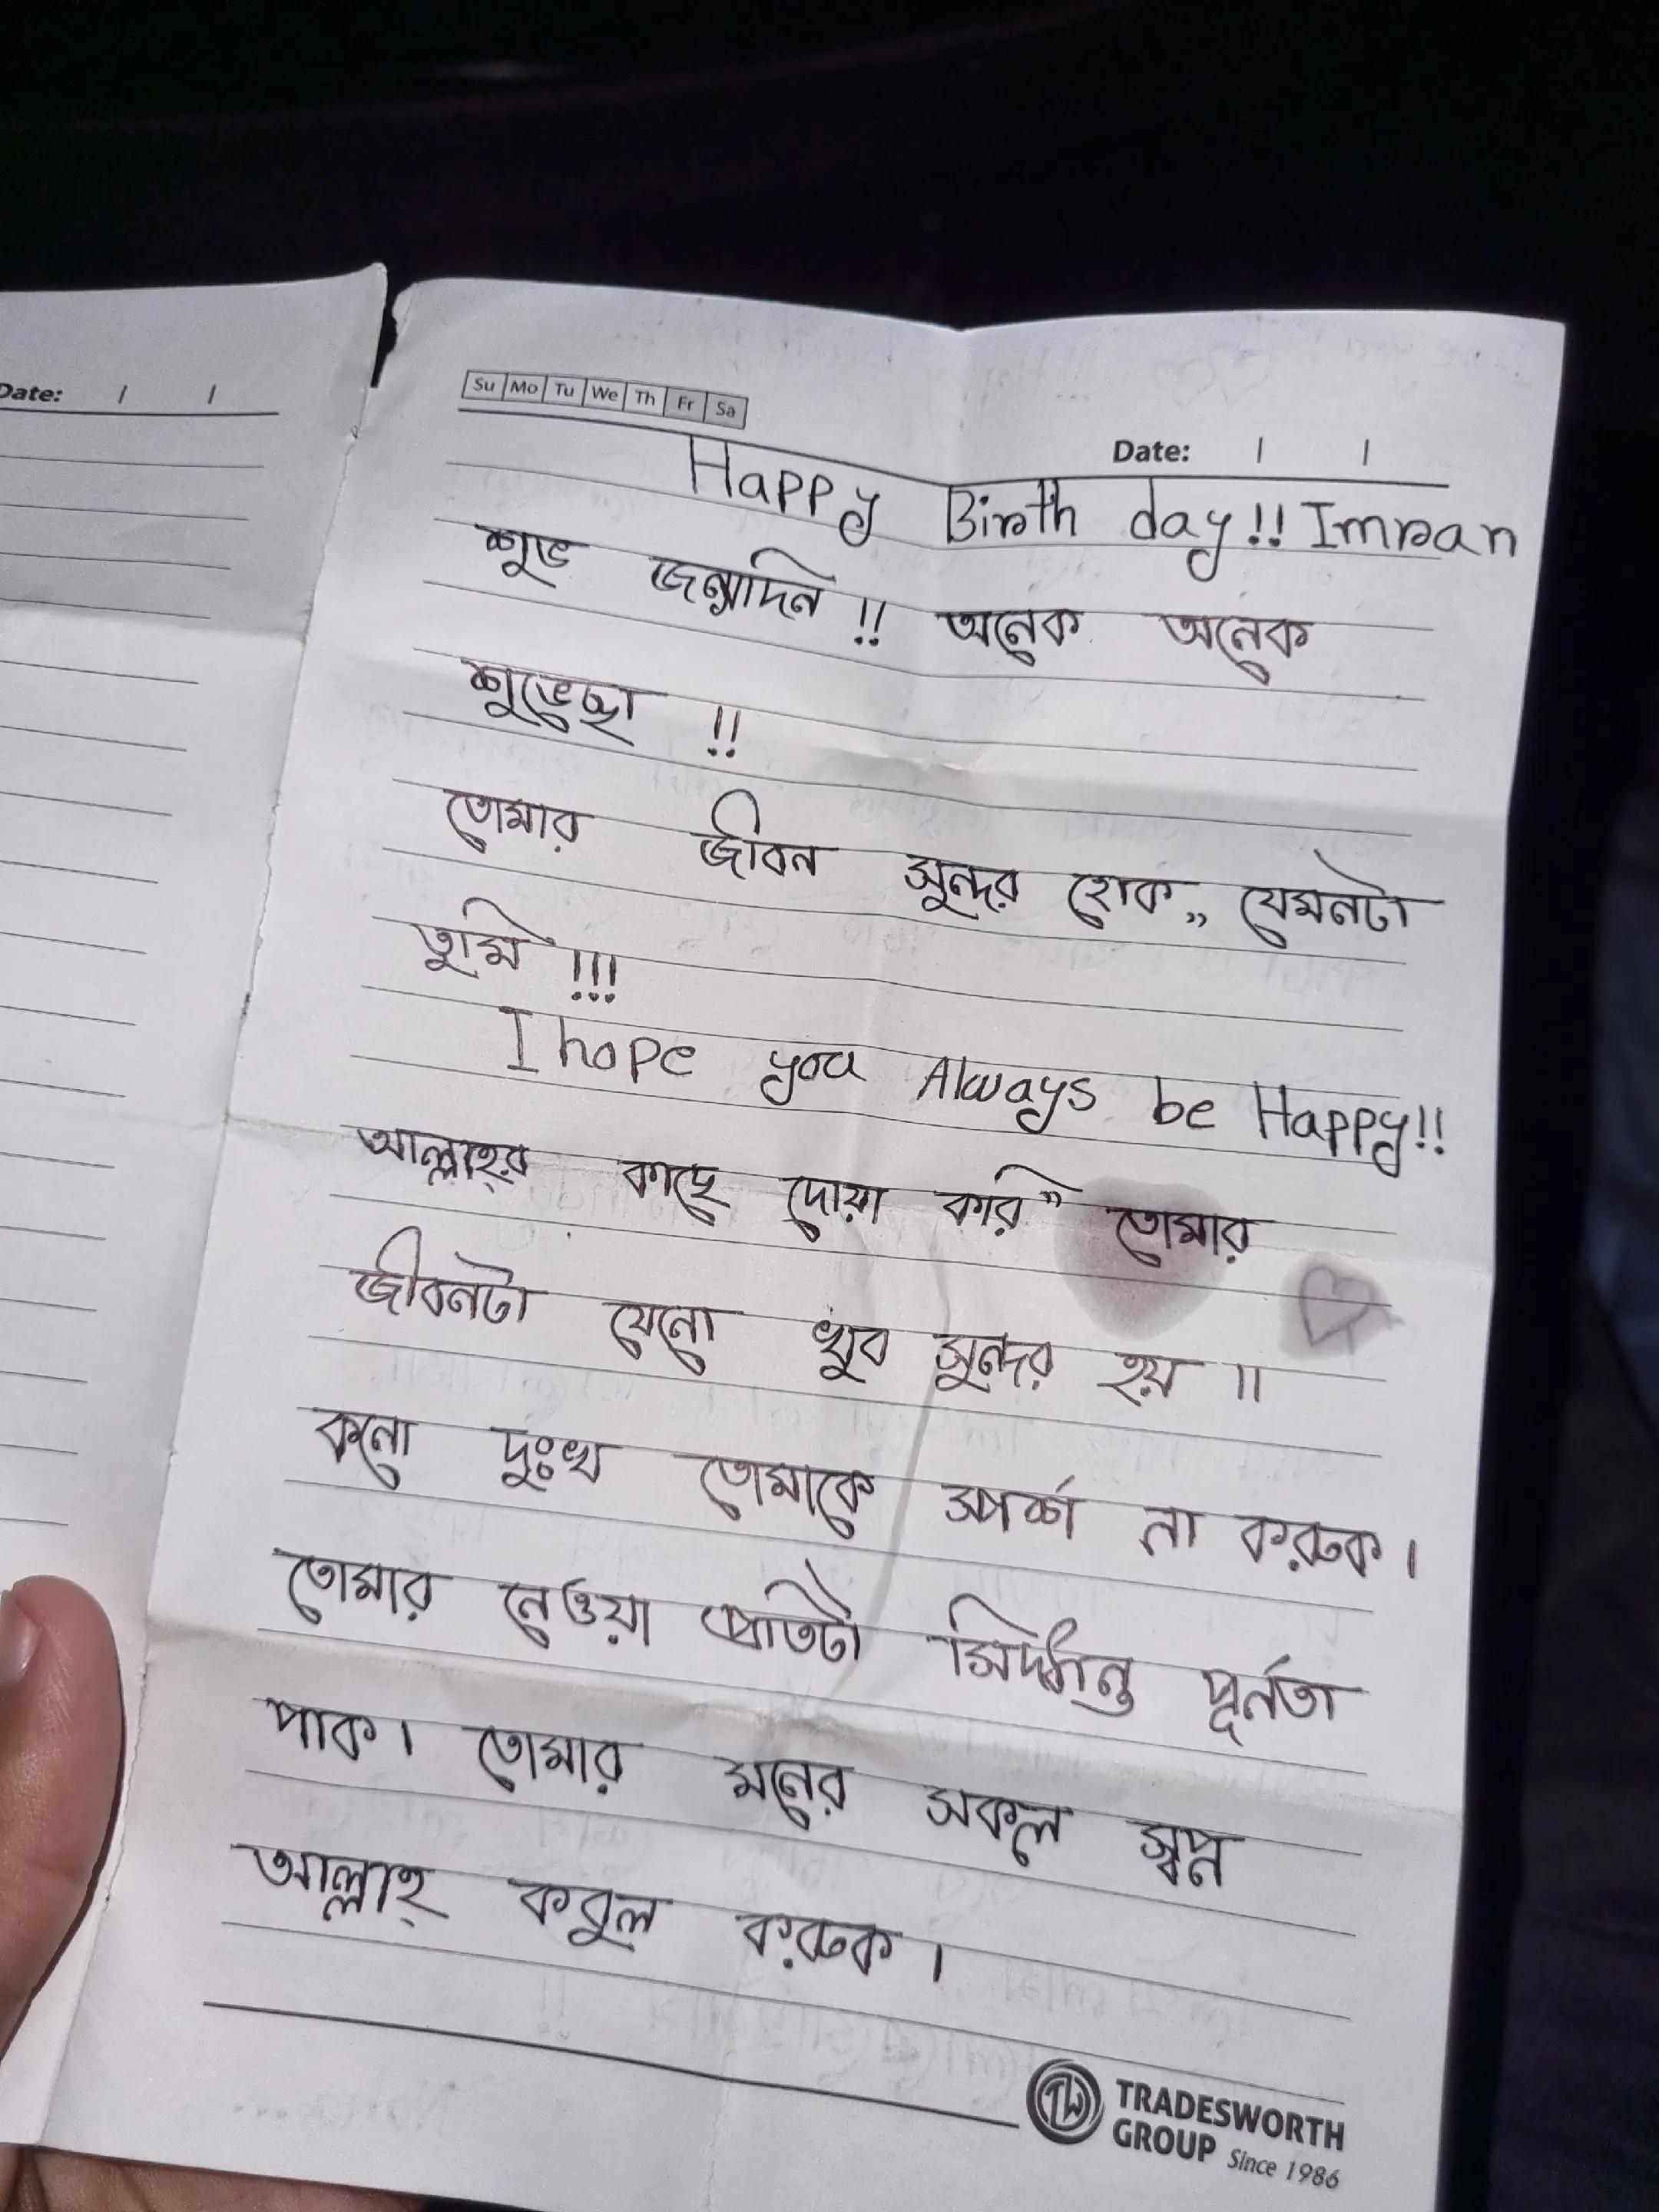 Date: / /
Su Mo Tu We Th Fr Sa
Date: / /
Happy Birth day!! Imran
শুভ জন্মদিন !! অনেক অনেক
শুভেচ্ছা !!
তোমার জীবন সুন্দর হোক,, যেমনটা
তুমি !!!
I hope you Always be Happy!!
আল্লাহ্‌র কাছে দোয়া করি" তোমার
জীবনটা যেনো খুব সুন্দর হয় ॥
কনো দুঃখ তোমাকে স্পর্শ না করুক।
তোমার নেওয়া প্রতিটা সিদ্ধান্ত পূর্নতা
পাক। তোমার মনের সকল স্বপ্ন
আল্লাহ্ কবুল করুক।
TW TRADESWORTH
GROUP Since 1986